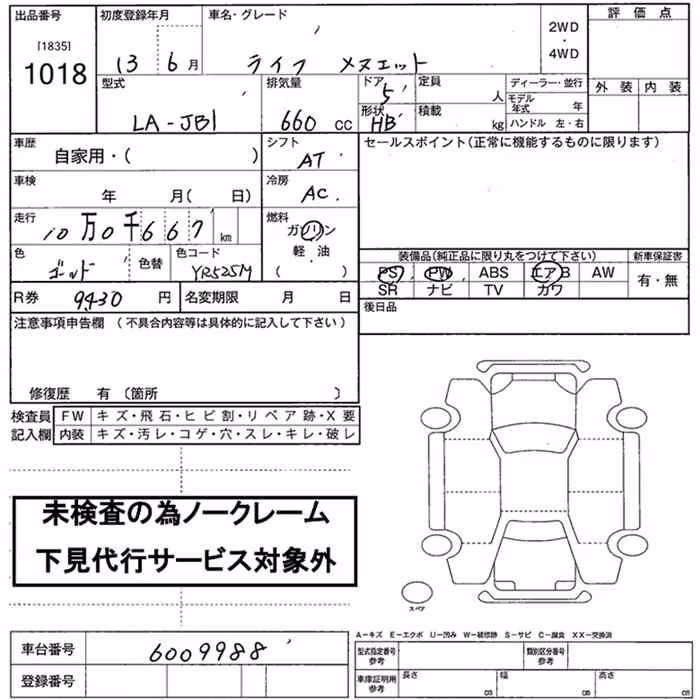 出品番号 初度登録年月 車名・グレード 評価点
[1835] 2WD
1018 13 6月 ライフ メヌエット ・
4WD
型式 排気量 ドア 5 定員 人 ディーラー・並行 外装 内装
LA-JB1 660 cc 形状 HB 積載 kg モデル年式 年
ハンドル 左・右
車歴 自家用・( ) シフト AT セールスポイント(正常に機能するものに限ります)
車検 年 月( 日) 冷房 AC
走行 10万0千667 km 燃料 ガソリン
軽・油
( )
色 ゴールド 色替 色コード YR525M 装備品(純正品に限り丸をつけて下さい) 新車保証書
PS PW ABS エアB AW 有・無
R券 9430円 名変期限 月 日 SR ナビ TV カワ
注意事項申告欄 (不具合内容等は具体的に記入して下さい) 後日品
修復歴 有〔箇所 〕
検査員 FW キズ・飛石・ヒビ割・リペア跡・X要
記入欄 内装 キズ・汚レ・コゲ・穴・スレ・キレ・破レ
未検査の為ノークレーム
下見代行サービス対象外
スペア
A-キズ E-エクボ U-凹み W-補修跡 S-サビ C-腐食 XX-交換済
車台番号 6009988 型式指定番号参考 類別区分番号参考
登録番号 車庫証明用参考 長さ cm 幅 cm 高さ cm